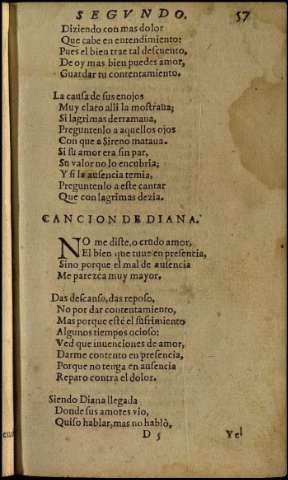 SEGVNDO. 57
Diziendo con mas dolor
Que cabe en entendimiento:
Pues el bien trae tal descuento,
De oy mas bien puedes amor,
Guardar tu contentamiento.
La causa de sus enojos
Muy claro alli la mostraua;
Si lagrimas derramaua,
Preguntenlo a aquellos ojos
Con que a Sireno mataua.
Si su amor era sin par,
Su valor no lo encubria;
Y si la ausencia temia,
Preguntenlo a este cantar
Que con lagrimas dezia.
CANCION DE DIANA.
NO me diste, o crudo amor,
El bien que tuue en presencia,
Sino porque el mal de ausencia
Me parezca muy mayor.
Das descanso, das reposo,
No por dar contentamiento,
Mas porque esté el sufrimiento
Algunos tiempos ocioso:
Ved que inuenciones de amor,
Darme contento en presencia,
Porque no tenga en ausencia
Reparo contra el dolor.
Siendo Diana llegada
Donde sus amores vio,
Quiso hablar, mas no hablò,
D 5 Y el